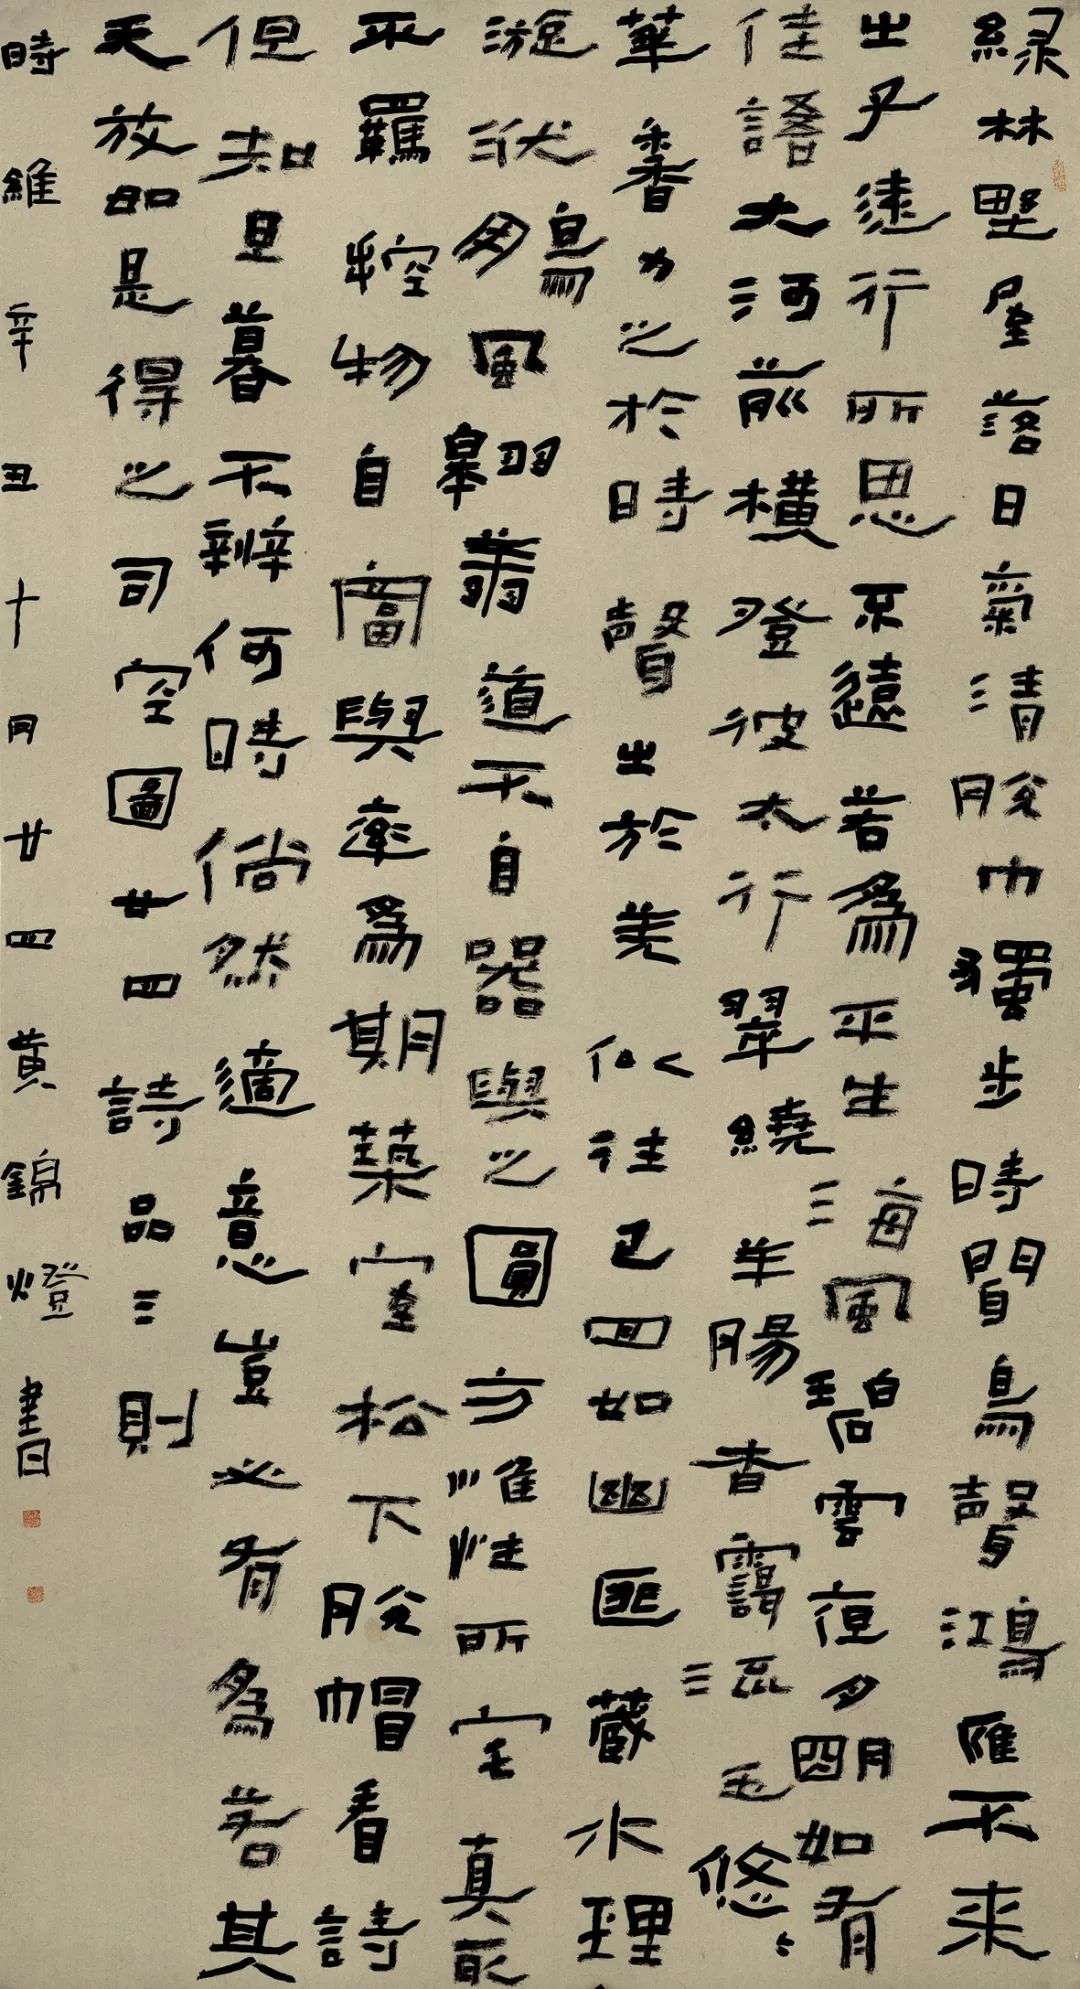 緑林野屋落日氣清脫巾獨步時聞鳥聲鴻雁不來
之子遠行所思不遠若爲平生海風碧雲夜月明如有
佳語大河前橫登彼太行翠繞羊腸杳靄流玉悠〻
華香力之於時聲之於羌似往已回如幽匪藏水理
漩洑鵬風翱翔道不自器與之圓方惟性所宅真取
不羈控物自富與率爲期築室松下脫帽看詩
但知旦暮不辨何時倘然適意豈必有爲若其
天放如是得之司空圖廿四詩品三則
時維辛丑十月廿四黄錦燈書